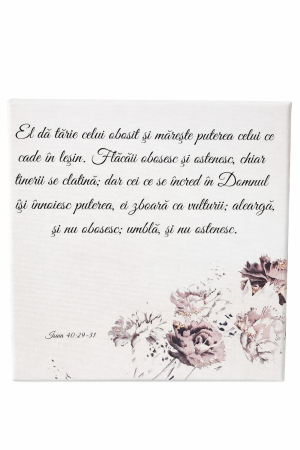 El dă tărie celui obosit și mărește puterea celui ce
cade în leșin. Flăcăii obosesc și ostenesc, chiar
tinerii se clatină; dar cei ce se încred în Domnul
își înnoiesc puterea, ei zboară ca vulturii; aleargă,
și nu obosesc; umblă, și nu ostenesc.
Isaia 40:29-31